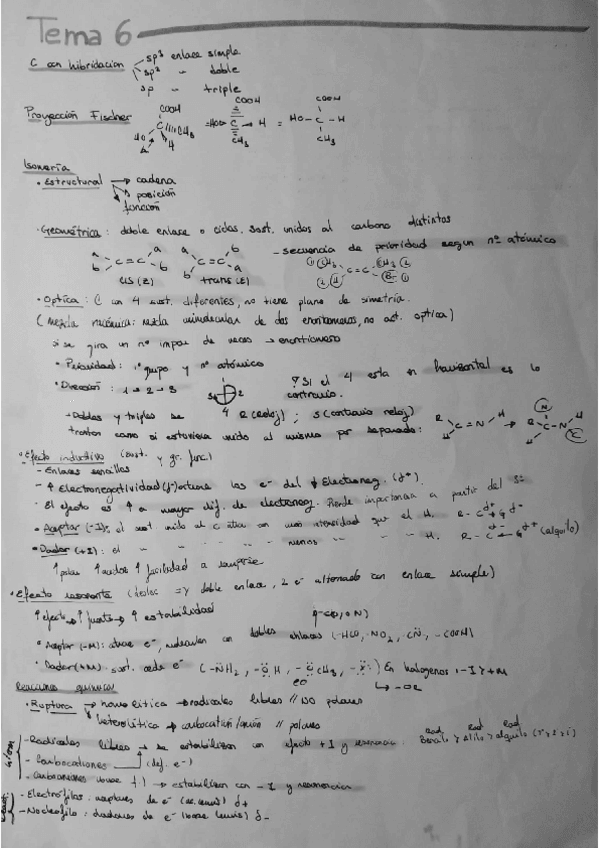 Tema 6
C con hibridacion sp³ enlace simple
sp² " doble
sp " triple
Proyección Fischer
COOH COOH COOH
C CH₃ = HO C H = HO-C-H
HO H CH₃ CH₃
Isomería
• Estructural → cadena
posición
función
• Geométrica: doble enlace o ciclos. Sust. unidos al carbono distintos
- secuencia de prioridad segun nº atómico
a a a b
C=C C=C
b b b a
cis (Z) trans (E)
• Optica: C con 4 sust. diferentes, no tiene plano de simetría.
de dos enantiomeros, no act. optica)
si se gira un nº impar de veces → enantiomero
• Prioridad: 1º grupo y nº atómico
• Direccion: 1→2→3
? Si el 4 esta en horizontal es lo
contrario.
R (reloj); S (contrario reloj)
→ Dobles y triples se
tratan como si estuviera unido al mismo por separado:
R H
C=N
H
• Efecto inductivo (sust. y gr. func.)
- Enlaces sencillos
- ↑ Electronegatividad (δ-) atrae los e⁻ del ↓ Electroneg. (δ⁺).
- El efecto es ↑ a mayor dif. de electroneg. Pierde importancia a partir del
• Aceptor (-I): el sust. unido al C atrae con más intensidad que el H.
• Dador (+I): el " " " " " menos " " " H. (alquilo)
↑ facilidad a romperse
• Efecto resonante (desloc => doble enlace, 2 e⁻ alternado con enlace simple)
↑ efecto → ↑ fuerte → ↑ estabilidad
• Aceptor (-M): atrae e⁻, moleculas con dobles enlaces (-HCO, -NO₂, -CN, -COOH)
• Dador (+M): sust. cede e⁻ (-NH₂, -OH, -OCH₃, En halogenos -I > +M
Reacciones quimicas
• Ruptura → homolítica → radicales libres // NO polares
heterolítica → carbocatión/anión // polares
- Radicales libres → se estabilizan con efecto +I y resonancia:
- Carbocationes (def. e⁻)
→ estabilizan con -I y resonancia
- Electrófilos: aceptores de e⁻ (ac. Lewis) δ+
- Nucleofilo: dadores de e⁻ (base Lewis) δ-